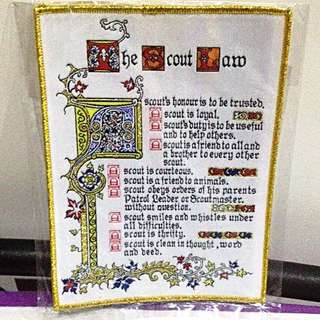 The Scout Law
A scout's honour is to be trusted.
A scout is loyal.
A scout's duty is to be useful
and to help others.
A scout is a friend to all and
a brother to every other
scout.
A scout is courteous.
A scout is a friend to animals.
A scout obeys orders of his parents
Patrol Leader or Scoutmaster
without question.
A scout smiles and whistles under
all difficulties.
A scout is thrifty.
A scout is clean in thought, word
and deed.